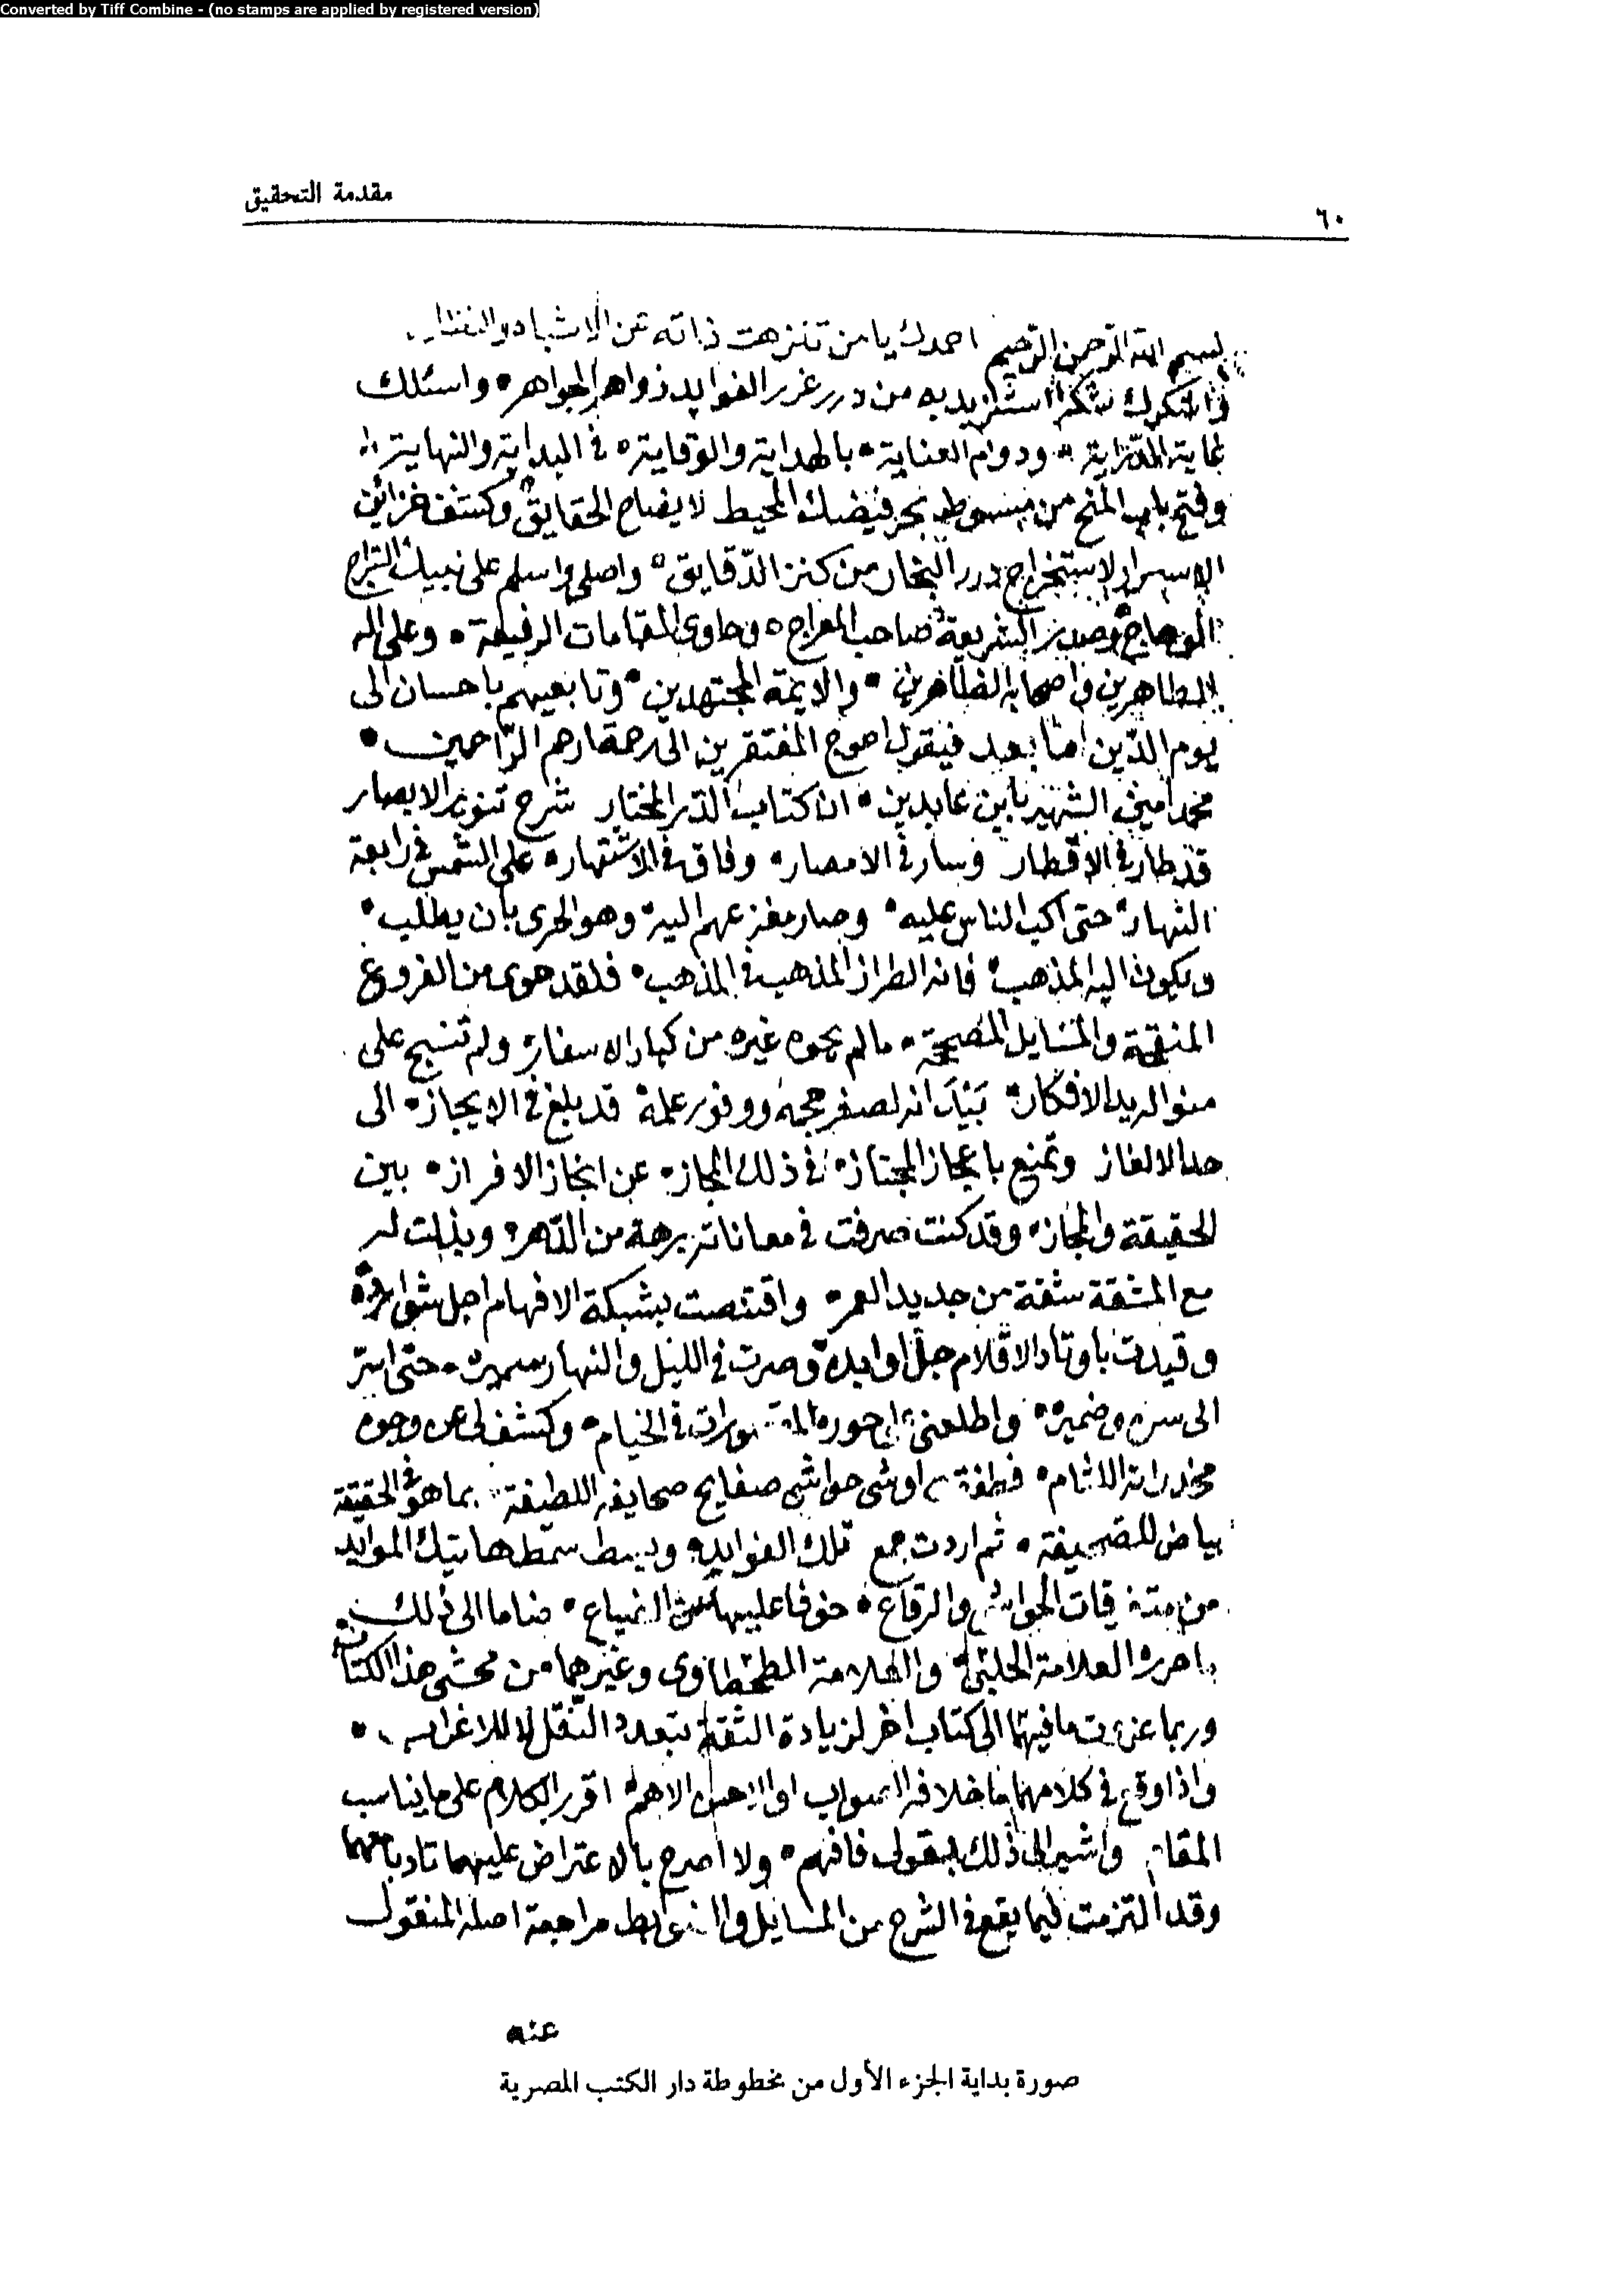 Converted by Tiff Combine - (no stamps are applied by registered version)
مقدمة التحقيق
٦٠
بسم الله الرحمن الرحيم احمدك يا من تنزهت ذاته عن الاشباه والنظائر
واشكرك شكرا استزيد به من درر غرر الفوايد زواهر الجواهر • واسئلك
غاية الدراية • ودوام العناية • بالهداية والوقاية • في البداية والنهاية •
وفتح باب المنح من مبسوط بحر فيضك المحيط لايضاح الحقايق • وكشف خزائن
الاسرار لاستخراج درر البحار من كنز الدقايق • واصلى واسلم على نبيك السراج
الوهاج • وصدر الشريعة صاحب المعراج • وحاوى المقامات الرفيعة • وعلى اله
الطاهرين واصحابه الظاهرين • والايمة المجتهدين • وتابعيهم باحسان الى
يوم الدين اما بعد فيقول احوج المفتقرين الى رحمة ارحم الراحمين •
محمد امين الشهير بابن عابدين • ان كتاب الدر المختار شرح تنوير الابصار
قد طار في الاقطار وسار في الامصار • وفاق في الاشتهار • على الشمس في رابعة
النهار • حتى اكب الناس عليه • وصار مفزعهم اليه • وهو الحرى بان يطلب •
ويكون اليه المذهب • فانه الطراز المذهب في المذهب • فلقد حوى من الفروع
المنقحة والمسايل المصححة • مالم يحوه غيره من كبار الاسفار • ولم تنسج على
منواله يد الافكار • بيد انه لصغر حجمه ووفور علمه قد بلغ في الايجاز • الى
حد الالغاز وتمنع باعجاز المجتاز • في ذلك المجاز • عن انجاز الافراز • بين
الحقيقة والمجاز • وقد كنت صرفت في معاناته برهة من الدهر • وبذلت له
مع المشقة شقة من جديد العمر • واقتنصت بشبكة الافهام اجل شوارده
وقيدت باوتاد الاقلام جل اوابده وصرت في الليل والنهار سميره • حتى اسر
الى سره وضميره • واطلعنى حوره المقصورات في الخيام • وكشف لى عن وجوه
مخدراته اللثام • فطفقت اوشى حواشى صفايح صحايفه اللطيفة • بما هو في الحقيقة
بياض للصحيفة • ثم اردت جمع تلك الفوايد • وبسط سمط هاتيك الموايد
من متفرقات الحواشى والرقاع • خوفا عليها من الضياع • ضاما الى ذلك
ما حرره العلامة الحلبى • والعلامة الطحطاوى وغيرهما من محشى هذا الكتاب
وربما عزوت ما فيهما الى كتاب اخر لزيادة الثقة بتعدد النقل لا للاغراب •
واذا وقع في كلامهما ما خلافه الصواب او الاحسن الاهم • اقرر الكلام على ما يناسب
المقام واشير الى ذلك بقولى فافهم • ولا اصرح بالاعتراض عليهما تادبا معهما
وقد التزمت فيما يقع في الشرح من المسايل والضوابط مراجعة اصله المنقول
عنه
صورة بداية الجزء الأول من مخطوطة دار الكتب المصرية